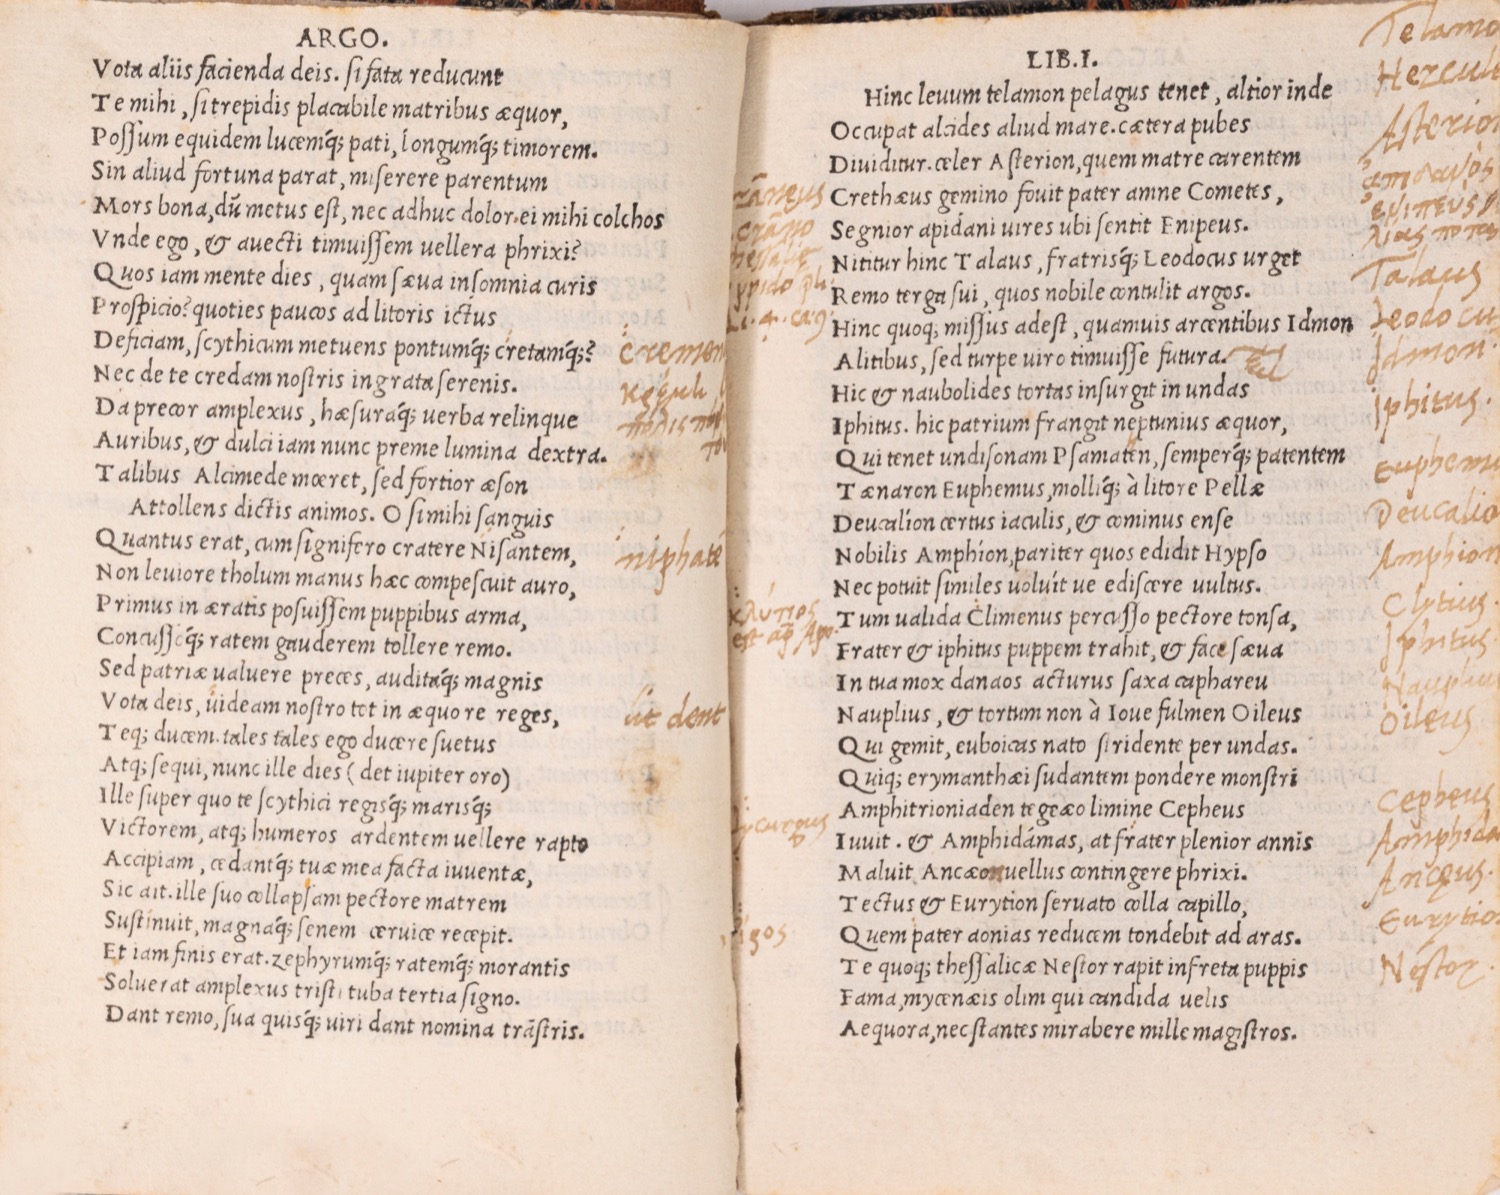 ARGO.
Vota aliis facienda deis. si fata reducunt
Te mihi, si trepidis placabile matribus æquor,
Possum equidem lucemq; pati, longumq; timorem.
Sin aliud fortuna parat, miserere parentum
Mors bona, dũ metus est, nec adhuc dolor. ei mihi colchos
Vnde ego, & auecti timuissem uellera phrixi?
Quos iam mente dies, quam sæua insomnia curis
Prospicio? quoties paucos ad litoris ictus
Deficiam, scythicum metuens pontumq; cretamq;?
Nec de te credam nostris ingrata serenis.
Da precor amplexus, hæsuraq; uerba relinque
Auribus, & dulci iam nunc preme lumina dextra.
Talibus Alcimede mœret, sed fortior æson
Attollens dictis animos. O si mihi sanguis
Quantus erat, cum signifero cratere Nisantem,
Non leuiore tholum manus hæc compescuit auro,
Primus in æratis posuissem puppibus arma,
Concussoq; ratem gauderem tollere remo.
Sed patriæ ualuere preces, auditaq; magnis
Vota deis, uideam nostro tot in æquore reges,
Teq; ducem. tales tales ego ducere suetus
Atq; sequi, nunc ille dies (det iupiter oro)
Ille super quo te scythici regisq; marisq;
Victorem, atq; humeros ardentem uellere rapto
Accipiam, cedantq; tuæ mea facta iuuentæ,
Sic ait. ille suo collapsam pectore matrem
Sustinuit, magnaq; senem ceruice recepit.
Et iam finis erat. zephyrumq; ratemq; morantis
Soluerat amplexus tristi tuba tertia signo.
Dant remo, sua quisq; uiri dant nomina trãstris.
niphatē
sit dent
LIB.I.
Hinc leuum telamon pelagus tenet, altior inde
Occupat alcides aliud mare. cætera pubes
Diuiditur. celer Asterion, quem matre carentem
Crethæus gemino fouit pater amne Cometes,
Segnior apidani uires ubi sentit Enipeus.
Nititur hinc Talaus, fratrisq; Leodocus urget
Remo terga sui, quos nobile contulit argos.
Hinc quoq; missus adest, quamuis arcentibus Idmon
Alitibus, sed turpe uiro timuisse futura.
Hic & naubolides tortas insurgit in undas
Iphitus. hic patrium frangit neptunius æquor,
Qui tenet undisonam Psamaten, semperq; patentem
Tænaron Euphemus, molliq; à litore Pellæ
Deucalion certus iaculis, & cominus ense
Nobilis Amphion, pariter quos edidit Hypso
Nec potuit similes uoluit ue ediscere uultus.
Tum ualida Climenus percusso pectore tonsa,
Frater & iphitus puppem trahit, & face sæua
In tua mox danaos acturus saxa caphareu
Nauplius, & tortum non à Ioue fulmen Oileus
Qui gemit, euboicas nato stridente per undas.
Quiq; erymanthæi sudantem pondere monstri
Amphitrioniaden tegeæo limine Cepheus
Iuuit. & Amphidámas, at frater plenior annis
Maluit Ancæon uellus contingere phrixi.
Tectus & Eurytion seruato colla capillo,
Quem pater aonias reducem tondebit ad aras.
Te quoq; thessalicæ Nestor rapit in freta puppis
Fama, mycenæis olim qui candida uelis
Aequora, nec stantes mirabere mille magistros.
κλύτιος
Telamo
Hercule
Asterion
ἀπιδανός
ἐνιπεύς
Talaus
Leodocu
Idmon
iphitus.
Euphemu
Deucalio
Amphion
Clytius.
Iphitus.
Nauplius
Oileus
Cepheus
Amphida
Ancęus.
Eurytio
Néstor.